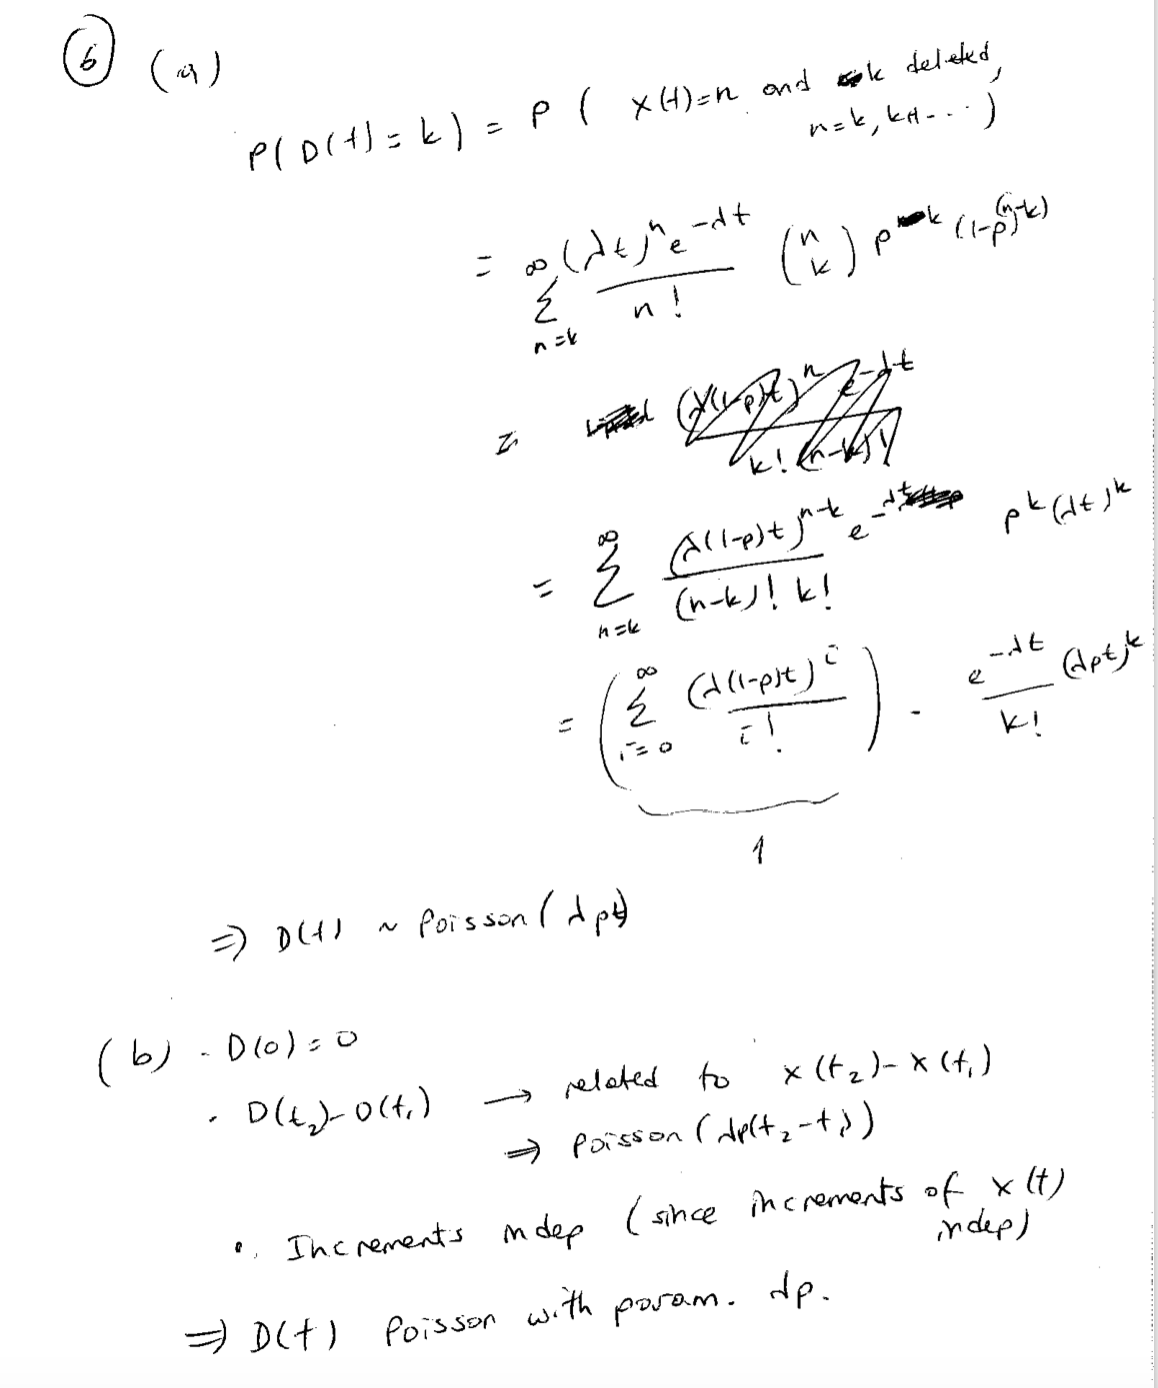 ⑥ (a)
P(D(t)=k) = P( X(t)=n and k deleted,
n=k, k+1...)
= ∞∑n=k (λt)^n e^-λt / n! (n k) p^k (1-p)^(n-k)
=
= ∞∑n=k (λ(1-p)t)^n-k e^-λt / (n-k)! k! p^k (λt)^k
= ( ∞∑i=0 (λ(1-p)t)^i / i! ) . e^-λt / k! (λpt)^k
1
⇒ D(t) ~ Poisson(λpt)
(b) - D(0)=0
· D(t₂)-D(t₁) → related to X(t₂)-X(t₁)
⇒ Poisson(λp(t₂-t₁))
· Increments indep (since increments of X(t)
indep)
⇒ D(t) Poisson with param. λp.